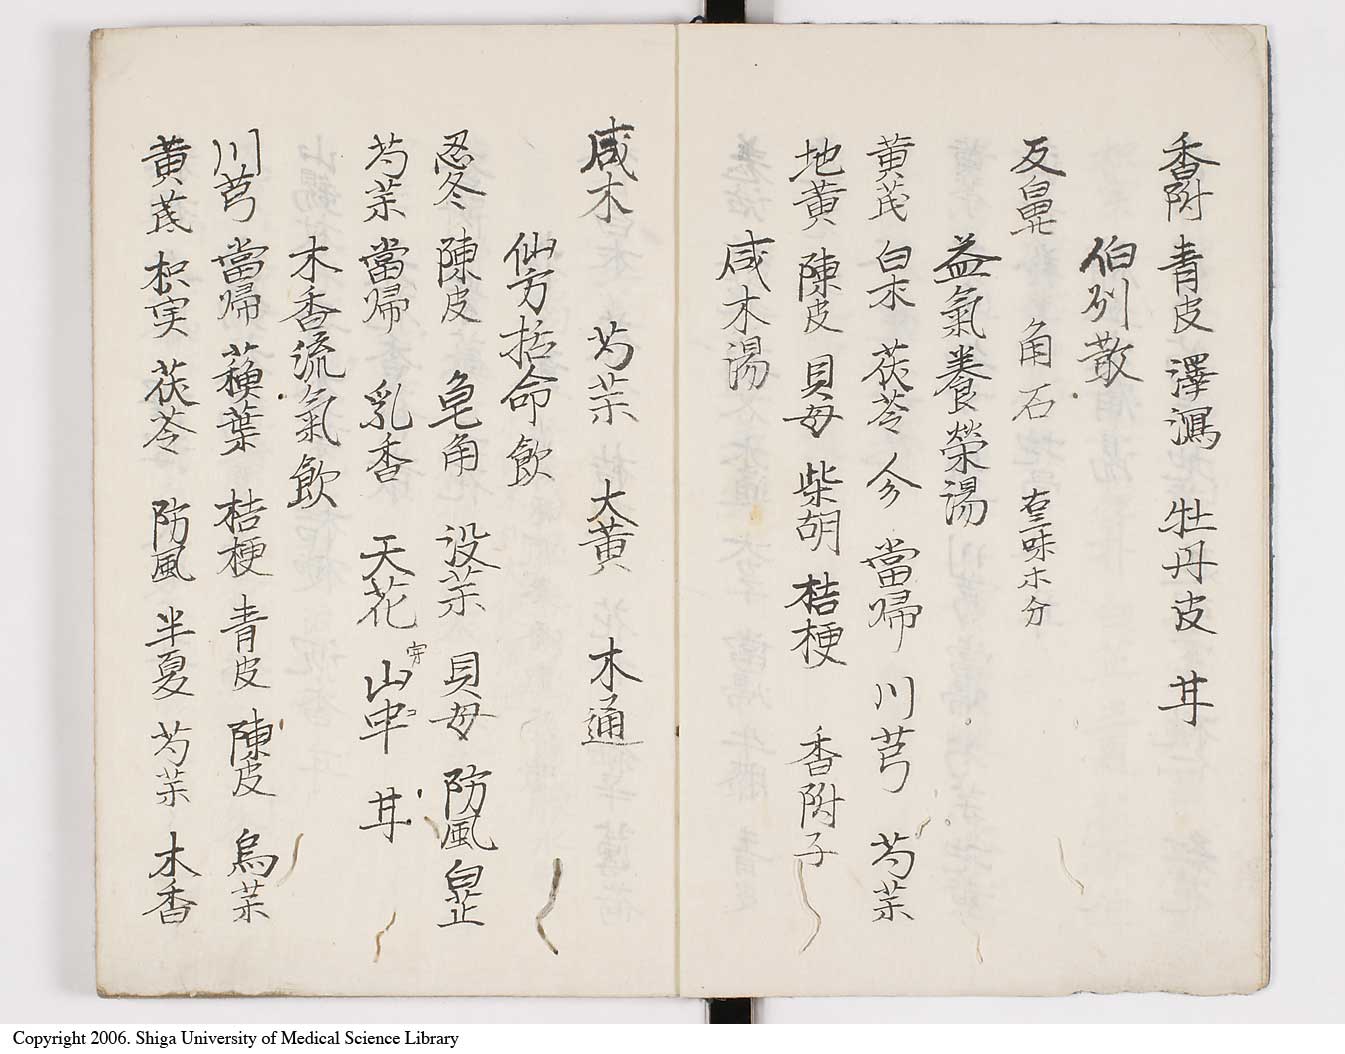 香附 青皮 澤瀉 牡丹皮 甘
伯州散
反鼻 角石 右三味等分
益氣養榮湯
黄芪 白朮 茯苓 參 當帰 川芎 芍薬
地黄 陳皮 貝母 柴胡 桔梗 香附子
咸木湯
咸木 芍薬 大黄 木通
仙方括命飲
忍冬 陳皮 皂角 没薬 貝母 防風 白芷
芍薬 當帰 乳香 天花 山甲 甘
木香流氣飲
川芎 當帰 蘓葉 桔梗 青皮 陳皮 烏薬
黄芪 枳実 茯苓 防風 半夏 芍薬 木香
Copyright 2006. Shiga University of Medical Science Library